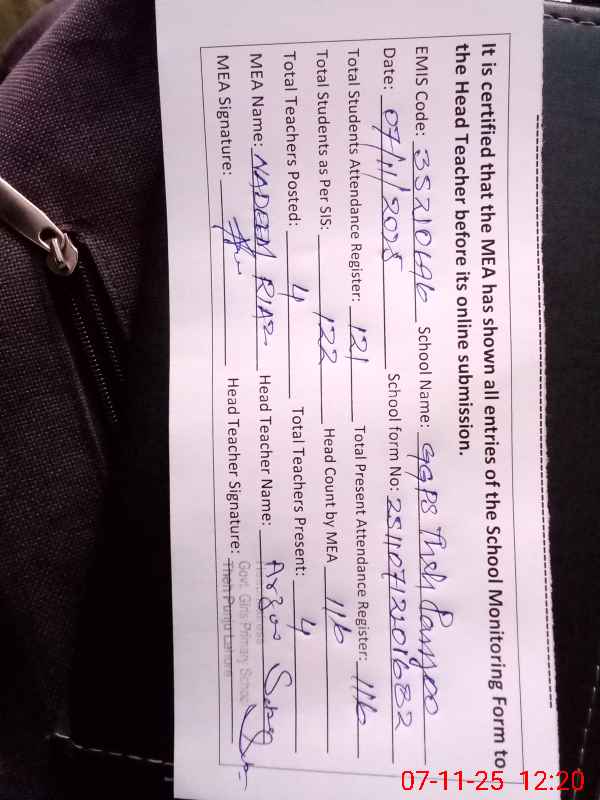 It is certified that the MEA has shown all entries of the School Monitoring Form to
the Head Teacher before its online submission.
EMIS Code: 35210196 School Name: GGPS Theh Panjoo
Date: 07/11/2025 School form No: 251107121201682
Total Students Attendance Register: 121 Total Present Attendance Register: 116
Total Students as Per SIS: 122 Head Count by MEA 116
Total Teachers Posted: 4 Total Teachers Present: 4
MEA Name: NADEEM RIAZ Head Teacher Name:
MEA Signature: Head Teacher Signature:
Govt. Girls Primary School
Theh Punju Lahore
07-11-25 12:20